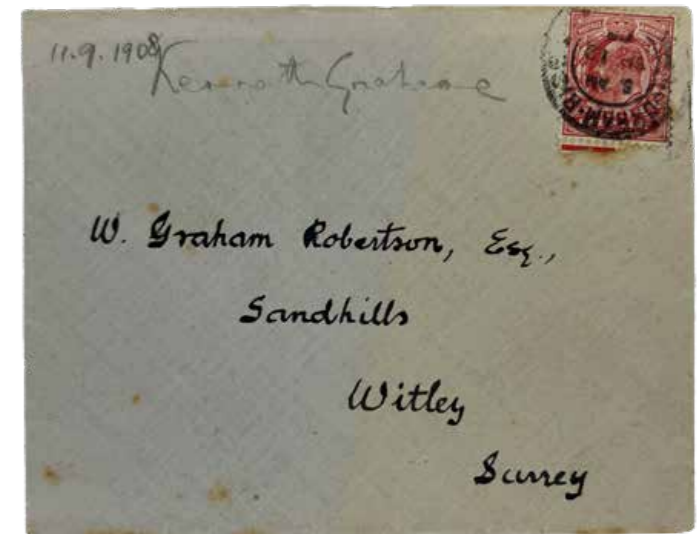 11.9.1908
Kenneth Grahame
W. Graham Robertson, Esq.,
Sandhills
Witley
Surrey